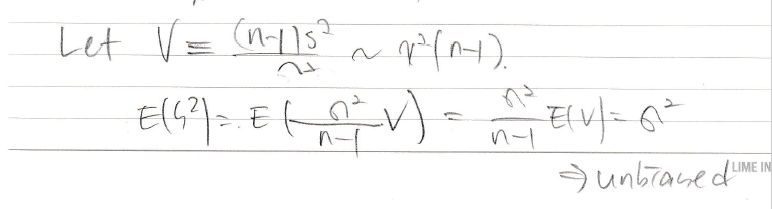 Let V = (n-1)s²/σ² ~ χ²(n-1).
E(S²) = E(σ²/(n-1) V) = σ²/(n-1) E(V) = σ²
⇒ unbiased
LIME IN